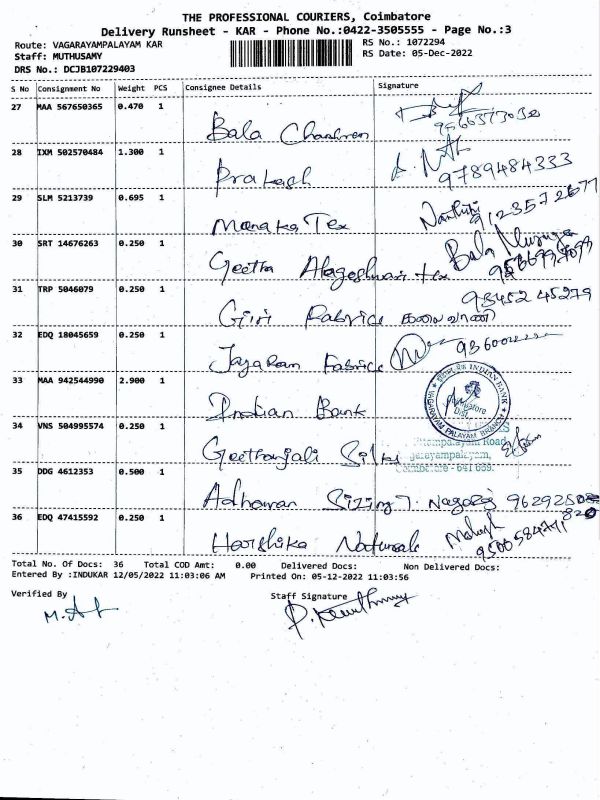 THE PROFESSIONAL COURIERS, Coimbatore
Delivery Runsheet - KAR - Phone No.:0422-3505555 - Page No.:3
Route: VAGARAYAMPALAYAM KAR RS No.: 1072294
Staff: MUTHUSAMY RS Date: 05-Dec-2022
DRS No.: DCJB107229403
S No Consignment No Weight PCS Consignee Details Signature
27 MAA 567650365 0.470 1
Bala Chandran
28 IXM 502570484 1.300 1
Prakash 9789484333
29 SLM 5213739 0.695 1
Monaka Tex
30 SRT 14676263 0.250 1 Bala
Geetha Alageshwari tex
31 TRP 5046079 0.250 1 98452 45279
Giri Fabrics கலைவாணி
32 EDQ 18045659 0.250 1
Jayaram Fabrics
33 MAA 942544990 2.900 1
Indian Bank
INDIAN BANK
VAGARAYAM PALAYAM BRANCH
34 VNS 504995574 0.250 1
Geethanjali Silks
Coimbatore - 641 659.
35 DDG 4612353 0.500 1
Adhavan Sizing T. Nagaraj
36 EDQ 47415592 0.250 1
Harshika Naturals
Total No. Of Docs: 36 Total COD Amt: 0.00 Delivered Docs: Non Delivered Docs:
Entered By :INDUKAR 12/05/2022 11:03:06 AM Printed On: 05-12-2022 11:03:56
Verified By Staff Signature